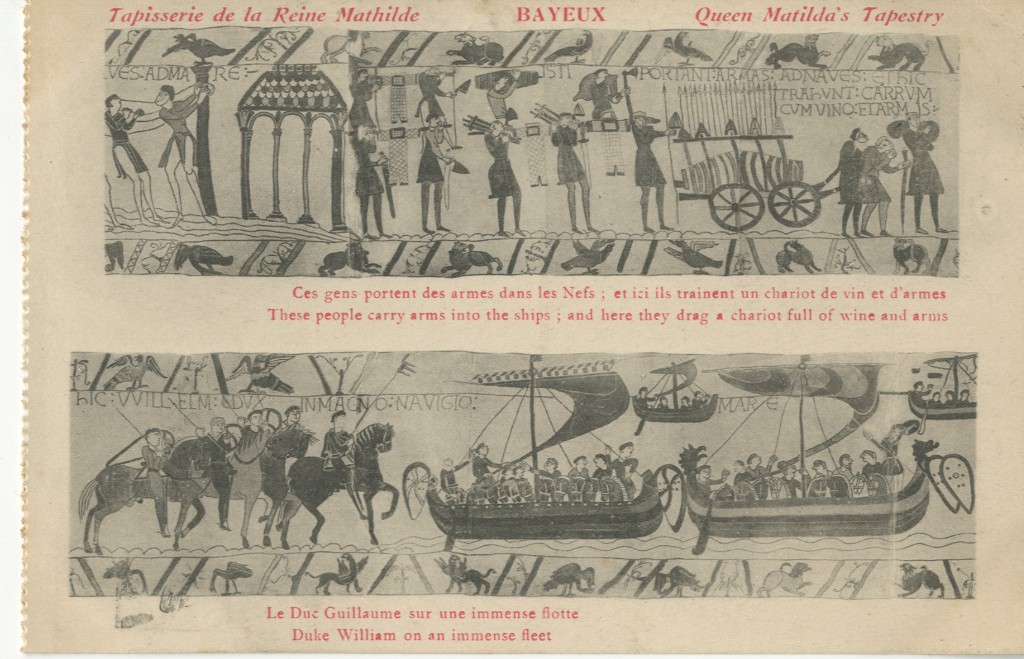 Tapisserie de la Reine Mathilde BAYEUX Queen Matilda's Tapestry
VES: ADMA RE:
ISTI PORTANT: ARMAS: ADNAVES: ETHIC
TRAHUNT: CARRVM
CUM VINO: ET ARMIS:
Ces gens portent des armes dans les Nefs ; et ici ils trainent un chariot de vin et d'armes
These people carry arms into the ships ; and here they drag a chariot full of wine and arms
hIC: VVILLELM: DVX INMAGNO: NAVIGIO: MARE
Le Duc Guillaume sur une immense flotte
Duke William on an immense fleet